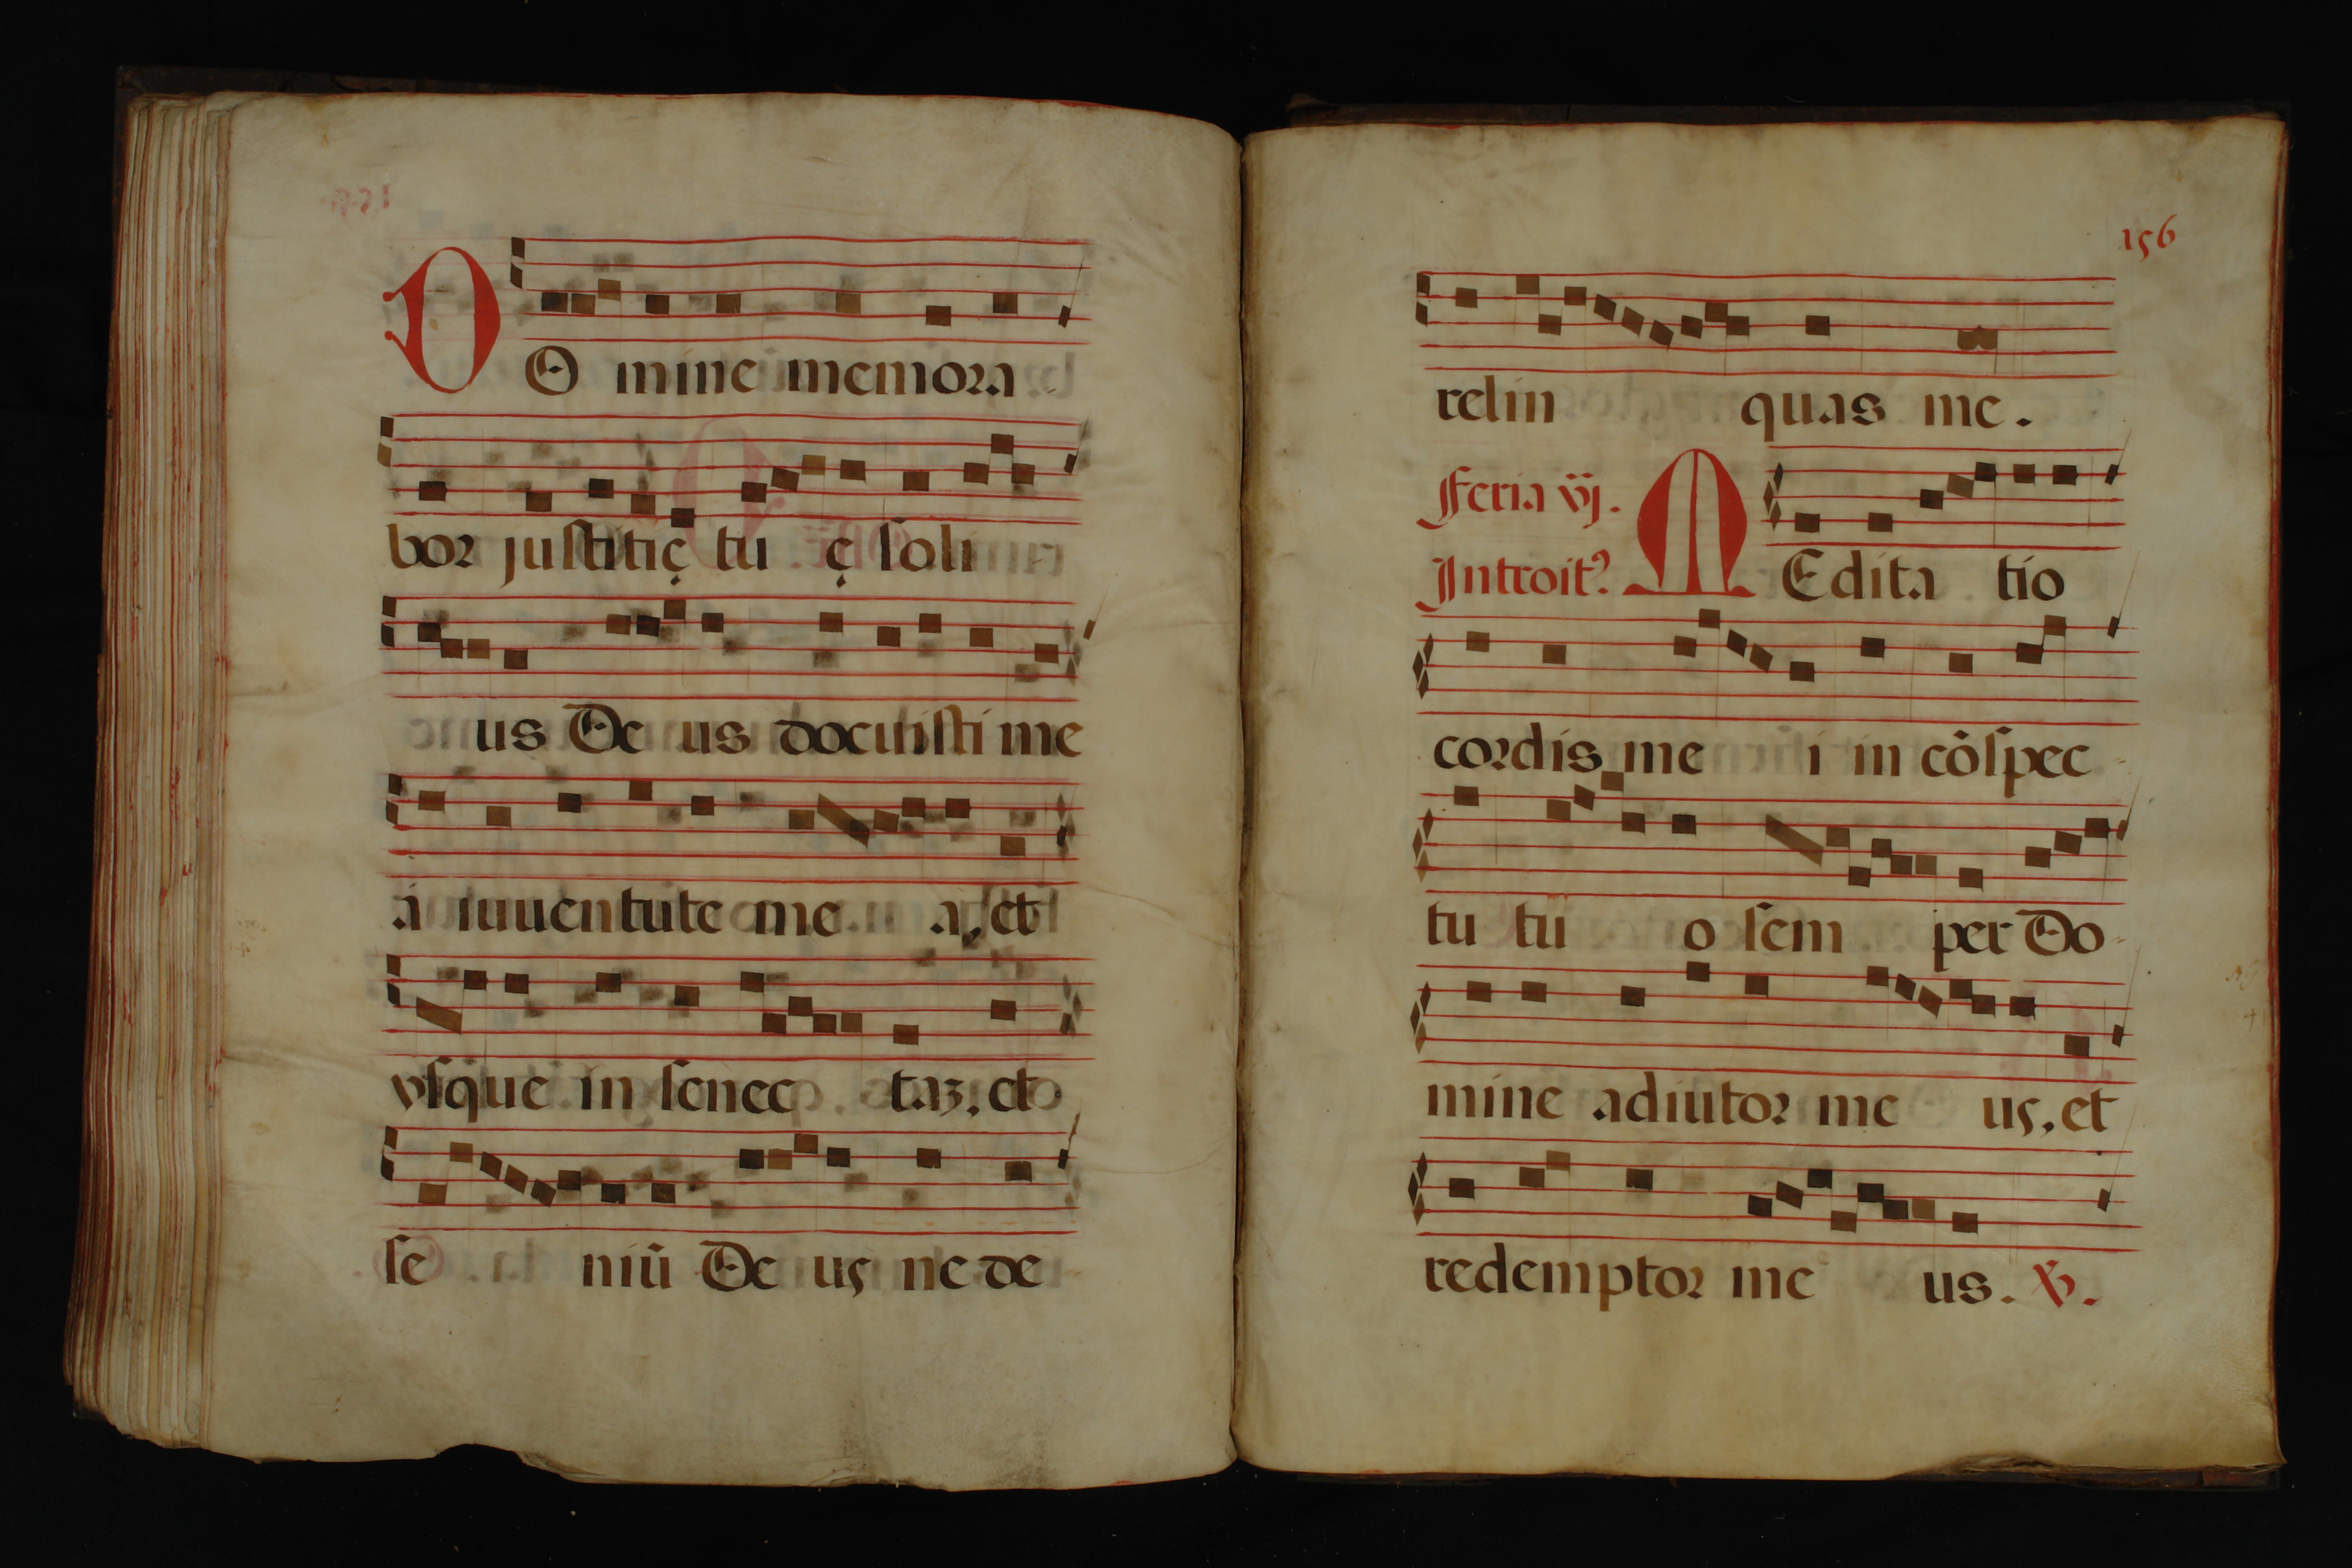 DOmine memora
bor justitię tuę soli
us Deus docuisti me
à iuuentute mea, et
vsque in senectaz, et
seniũ Deus ne de
156
relinquas me.
Feria vj.
Introit⁹ MEditatio
cordis mei in cõspec
tu tuo semper Do
mine adiutor meus, et
redemptor meus. ℣.